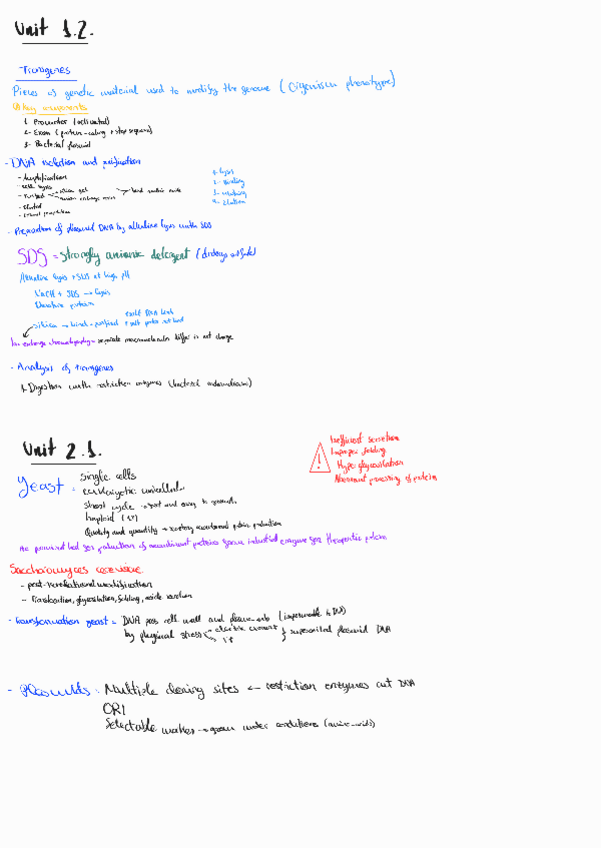 Unit 1.2.
- Transgenes
Pieces of genetic material used to modify the genome (Organism phenotype)
Key components
1. Promoter (activated)
2- Exon (protein-coding + stop sequence)
3- Bacterial plasmid
- DNA isolation and purification
- Amplification
- Cell lysis
silica gel
anion exchange resin
bind nucleic acids
- Eluted
1- Lysis
2- Binding
3- washing
4- Elution
- Preparation of plasmid DNA by alkaline lysis with SDS
SDS = strongly anionic detergent
Alkaline lysis + SDS at high pH
NaOH + SDS → Lysis
Denature proteins
silica → bind-purified
+ salt DNA
+ salt not bind
Ion exchange chromatography = separate macromolecules differ in net charge
- Analysis of transgenes
1. Digestion with restriction enzymes (bacterial endonucleases)
Unit 2.1.
Inefficient secretion
Improper folding
Hyperglycosilation
Abnormal processing of proteins
!
Yeast =
single cells
eukaryotic unicellular
short cycle → fast and easy to grow
haploid
Quality and quantify → recombinant protein production
production of recombinant proteins industrial enzyme therapeutic proteins
Saccharomyces cerevisiae
- post-translational modification
- Translocation, glycosilation, folding,
- Transformation yeast = DNA pass cell wall and (impermeable to DNA)
by physical stress
electric current
supercoiled plasmid DNA
- Plasmids: Multiple cloning sites ← restriction enzymes cut DNA
ORI
Selectable marker → grow under conditions (amino-acids)